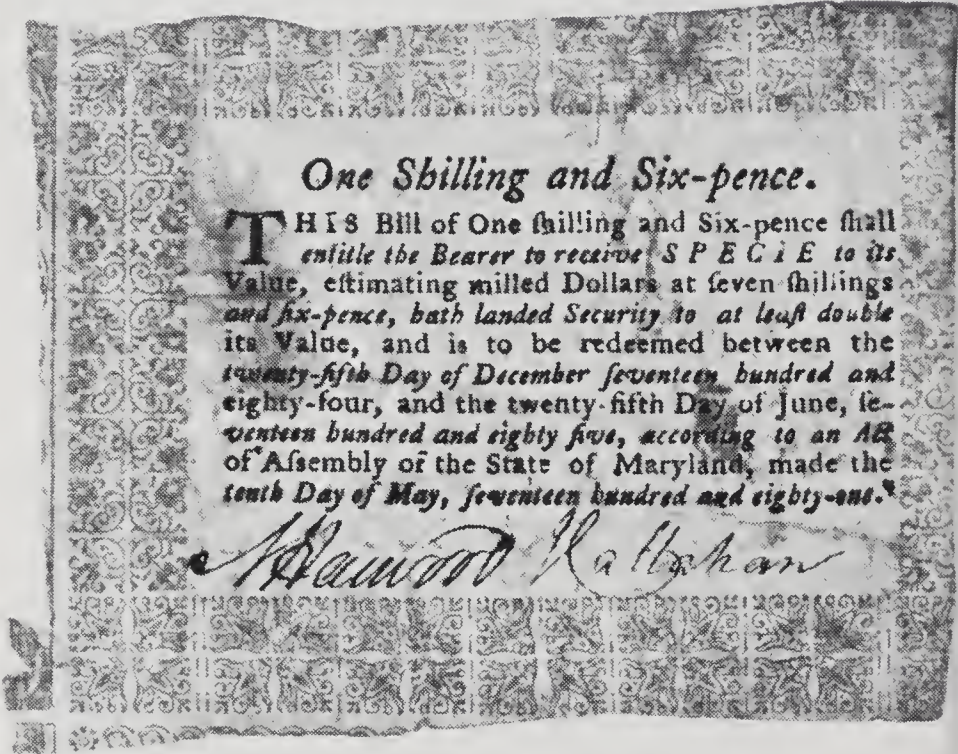 One Shilling and Six-pence.
THIS Bill of One ſhilling and Six-pence ſhall
entitle the Bearer to receive SPECIE to its
Value, eſtimating milled Dollars at ſeven ſhillings
and ſix-pence, hath landed Security to at leaſt double
its Value, and is to be redeemed between the
twenty-fifth Day of December ſeventeen hundred and
eighty-four, and the twenty-fifth Day of June, ſe-
venteen hundred and eighty five, according to an Act
of Aſſembly of the State of Maryland, made the
tenth Day of May, ſeventeen hundred and eighty-one.
N Harwood